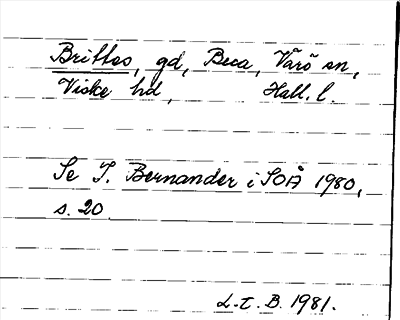 Brittos, gd, Beca, Värö sn,
Viske hd, Hall. l.
Se I. Bernander i SOÅ 1980,
s. 20.
L-t. B. 1981.